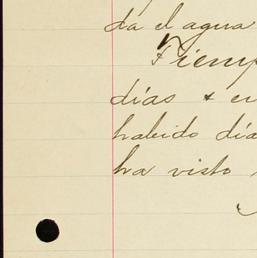 da el agua
Tiemp
días & en
habido día
ha visto